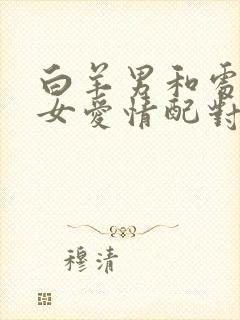 白羊男和
女愛情配對
穆清